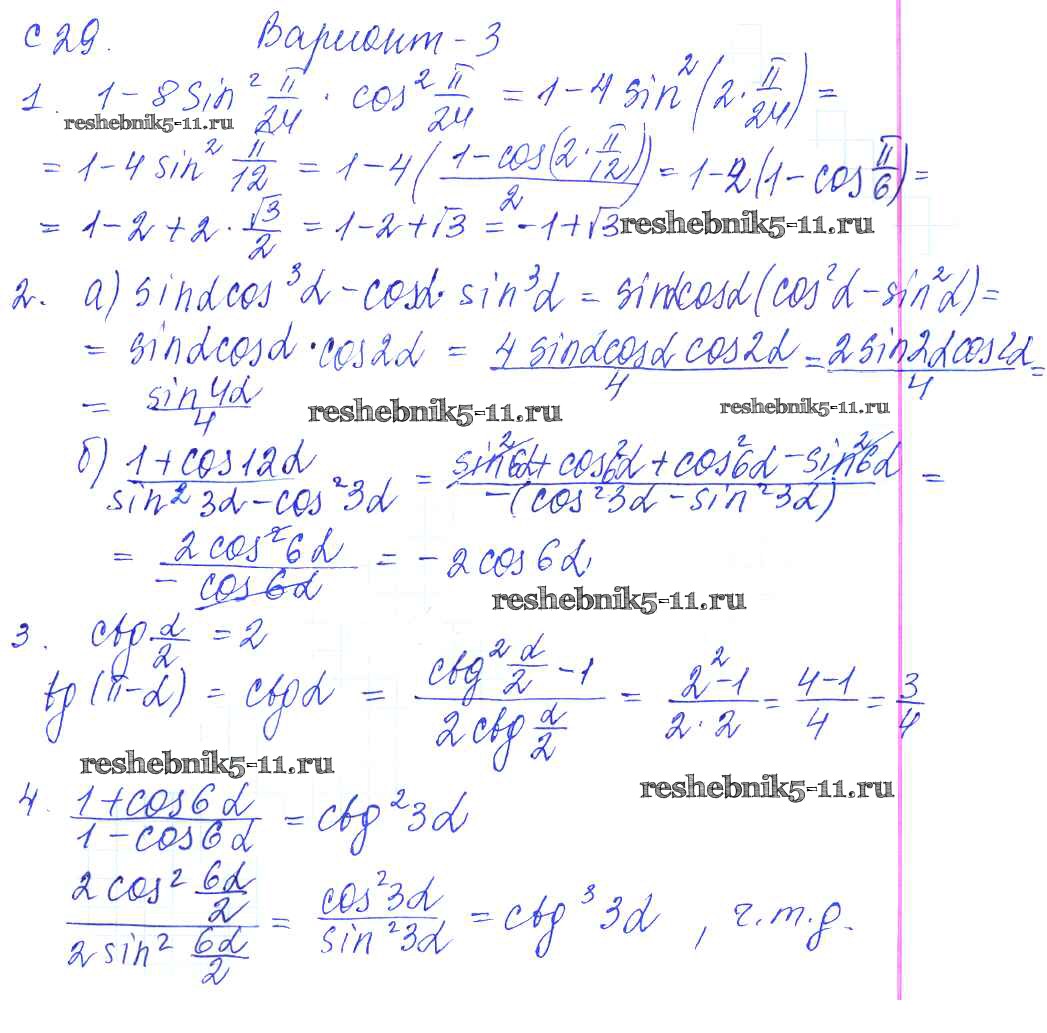 С 29. Вариант - 3
1. 1 - 8 sin² π/24 · cos² π/24 = 1 - 4 sin² (2 · π/24) =
reshebnik5-11.ru
= 1 - 4 sin² π/12 = 1 - 4 ( (1 - cos(2 · π/12))/2 ) = 1 - 2(1 - cos π/6) =
= 1 - 2 + 2 · √3/2 = 1 - 2 + √3 = -1 + √3 reshebnik5-11.ru
2. а) sinα cos³α - cosα · sin³α = sinα cosα (cos²α - sin²α) =
= sinα cosα · cos2α = (4 sinα cosα cos2α)/4 = (2 sin2α cos2α)/4 =
= sin4α/4 reshebnik5-11.ru reshebnik5-11.ru
б) (1 + cos12α)/(sin²3α - cos²3α) = (sin²6α + cos²6α + cos²6α - sin²6α)/(-(cos²3α - sin²3α)) =
= (2 cos²6α)/(-cos6α) = -2 cos6α
reshebnik5-11.ru
3. ctg α/2 = 2
tg(π - α) = ctgα = (ctg² α/2 - 1)/(2 ctg α/2) = (2² - 1)/(2 · 2) = (4 - 1)/4 = 3/4
reshebnik5-11.ru reshebnik5-11.ru
4. (1 + cos6α)/(1 - cos6α) = ctg²3α
(2 cos² 6α/2)/(2 sin² 6α/2) = cos²3α/sin²3α = ctg³3α, ч.т.д.